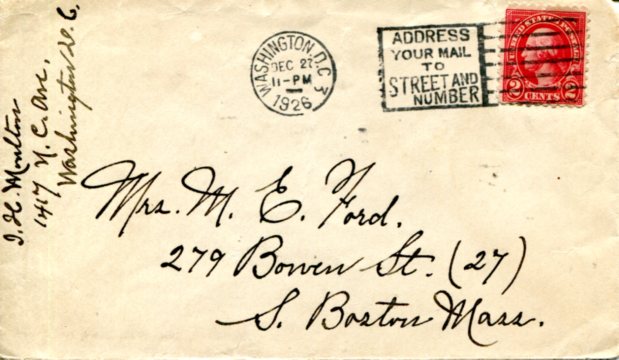 I. H. Moulton
1417 N. C. Ave.
Washington D. C.
WASHINGTON, D.C. 3
DEC 27
11-PM
1926
ADDRESS
YOUR MAIL
TO
STREET AND
NUMBER
2 CENTS 2
Mrs. M. E. Ford.
279 Bowen St. (27)
S. Boston Mass.